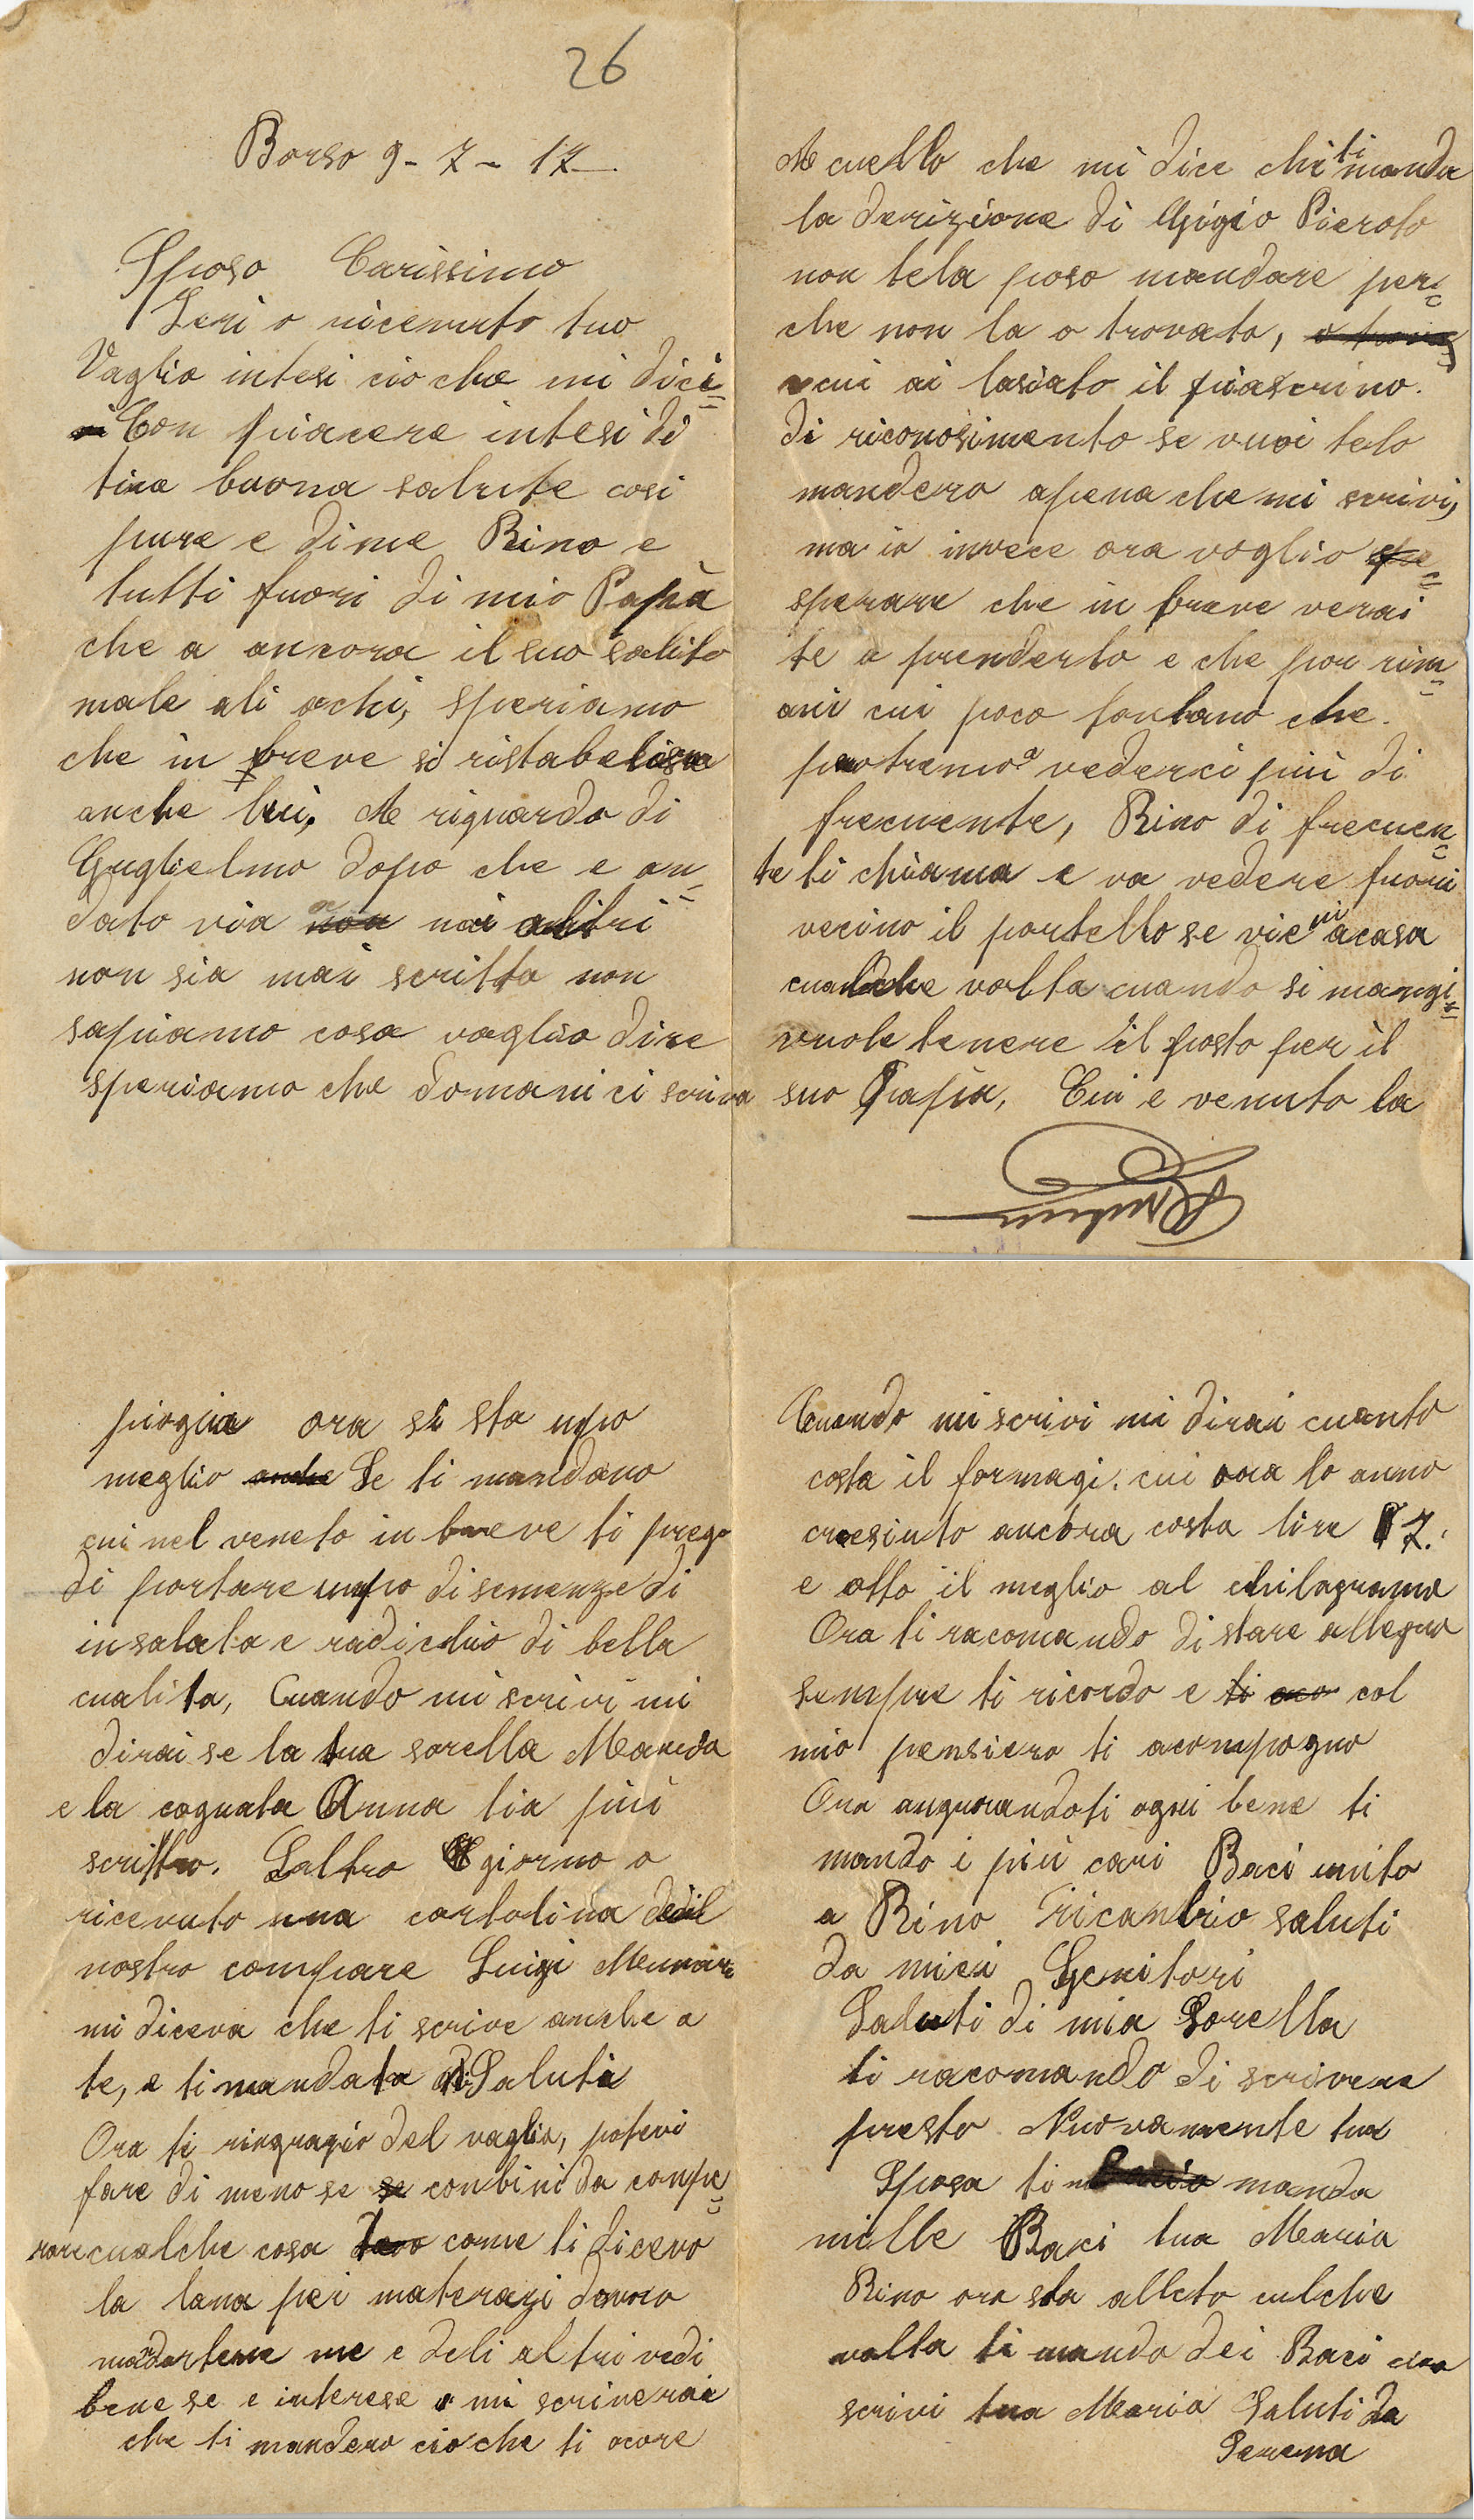 26
Borso 9-7-17
Sposo Carissimo
Ieri o ricevuto tuo
Vaglia intesi cio che mi dici
Con piacere intesi di
tua buona salute cosi
pure e di me Rino e
tutti fuori di mio Papà
che a ancora il suo solito
male ali ochi, speriamo
che in breve si ristabelisca
anche lui, A riguardo di
Guglielmo dopo che e an=
dato via non noi altri
non sia mai scritto non
sapiamo cosa voglia dire
speriamo che domani ci scriva
A cuello che mi dice chi ti manda
la derizione di Gigio Pieroto
non tela poso mandare per=
che non la o trovato, o trova
cui ai lasiato il piascrino.
di riconosimento se vuoi telo
mandero apena che mi scrivi,
ma io invece ora voglio spe=
sperare che in breve verai
te a prenderlo e che por rim=
ani cui poco lontano che.
potremo vederci piu di
frecuente, Rino di frecuen=
te ti chiama e va vedere fuori
vecino il portello se vieni a casa
cualche volta cuando si mangi=
vuole tenere il posto per il
suo Papia, Cui e venuto la
piogia ora si sta unpo
meglio anche Se ti mandano
cui nel veneto in breve ti prego
di portare unpo di semenze di
insalata e radichio di bella
cualita, Cuando mi scrivi mi
dirai se la tua sorella
e la cognata Anna tia piu
scritto. Laltro giorno o
ricevuto una cartolina del
nostro compare Luigi Munari
mi diceva che ti scrive anche a
te, e ti mandata Saluti
Ora ti ringrazio del vaglia, potevi
fare di meno se se combini da conpe=
rare cualche cosa come ti dicevo
la lana pei materazi devono
mandartene me e deli altri vedi
bene se e interese mi scriverai
che ti mandero cio che ti ocore
Cuando mi scrivi mi dirai cuanto
costa il formagi. cui ora lo anno
cresiuto ancora costa lire 7.
e otto il meglio al chilogramo
Ora ti racomando di stare allegro
sempre ti ricordo e ti aco col
mio pensiero ti acompogno
Ora angurandoti ogni bene ti
mando i piu cari Baci unito
a Rino ricambio saluti
da miei Genitori
Saluti di mia Sorella
ti racomando di scrivere
presto Nuovamente tua
Sposa ti manda
mille Baci tua Maria
Rino ora sta alleto culche
volta ti manda dei Baci
scrivi tua Maria Saluti da
Serena